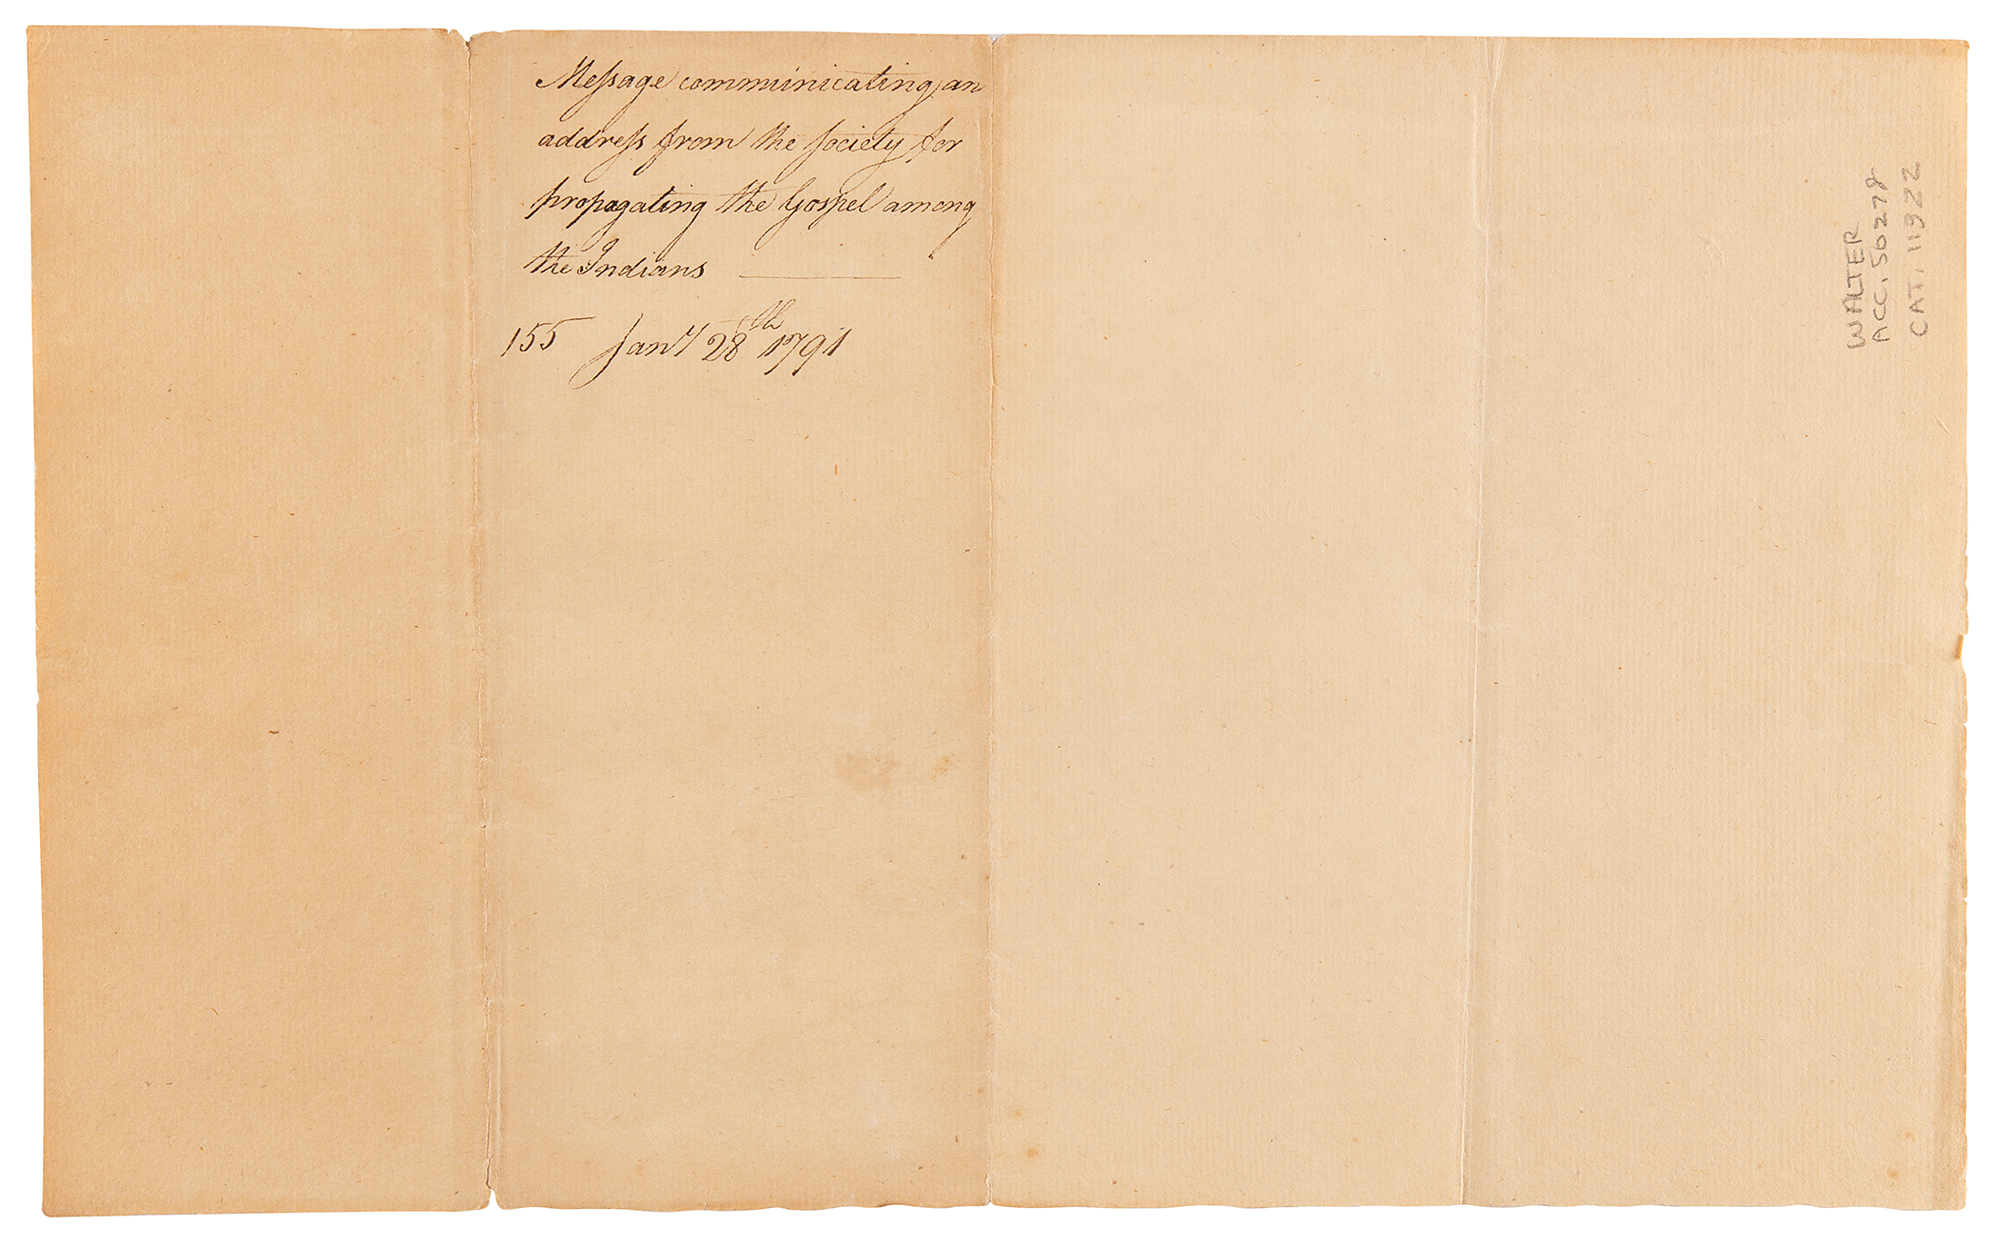 Meſsage communicating an
addreſs from the ſociety for
propagating the Gospel among
the Indians
155 Jany 28th 1791
WALTER
ACC. 50278
CAT. 11322